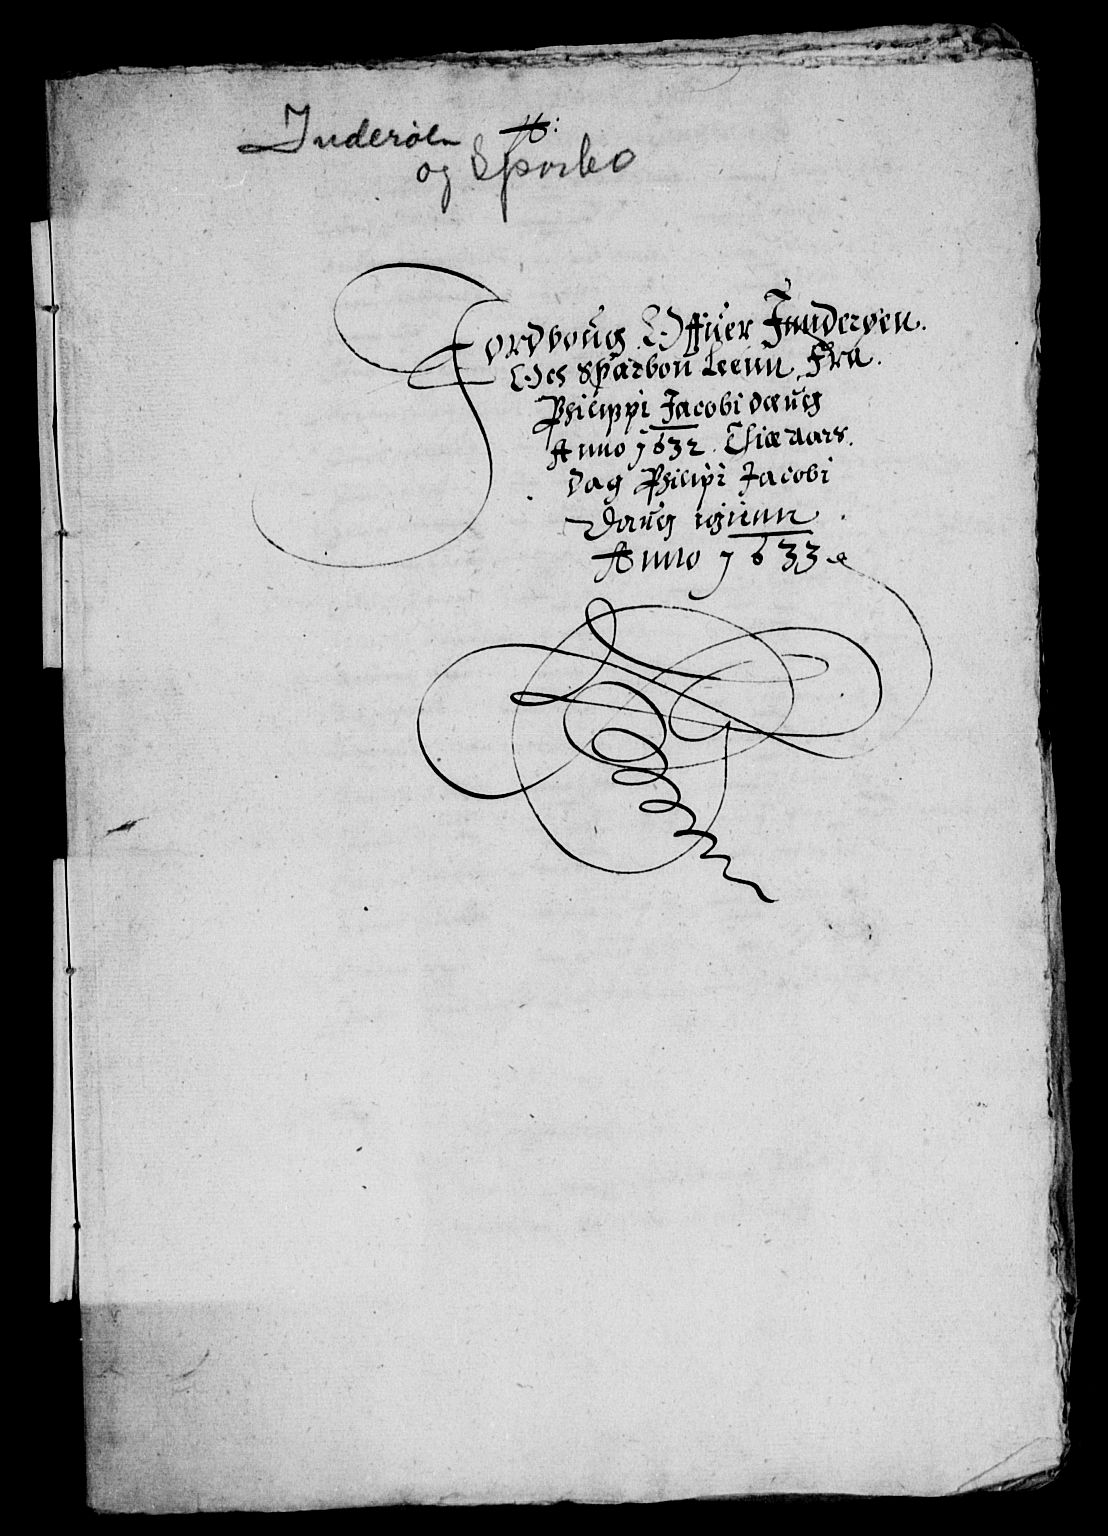 Inderøen H:
og Sparbo
Jordboug Offuer Inderøen.
Och Sparbou Leenn, Fra.
Philippi Jacobi daug
Anno 1632. Thil aars.
dag Philipi Jacobi
Daug igienn.
Anno 1633